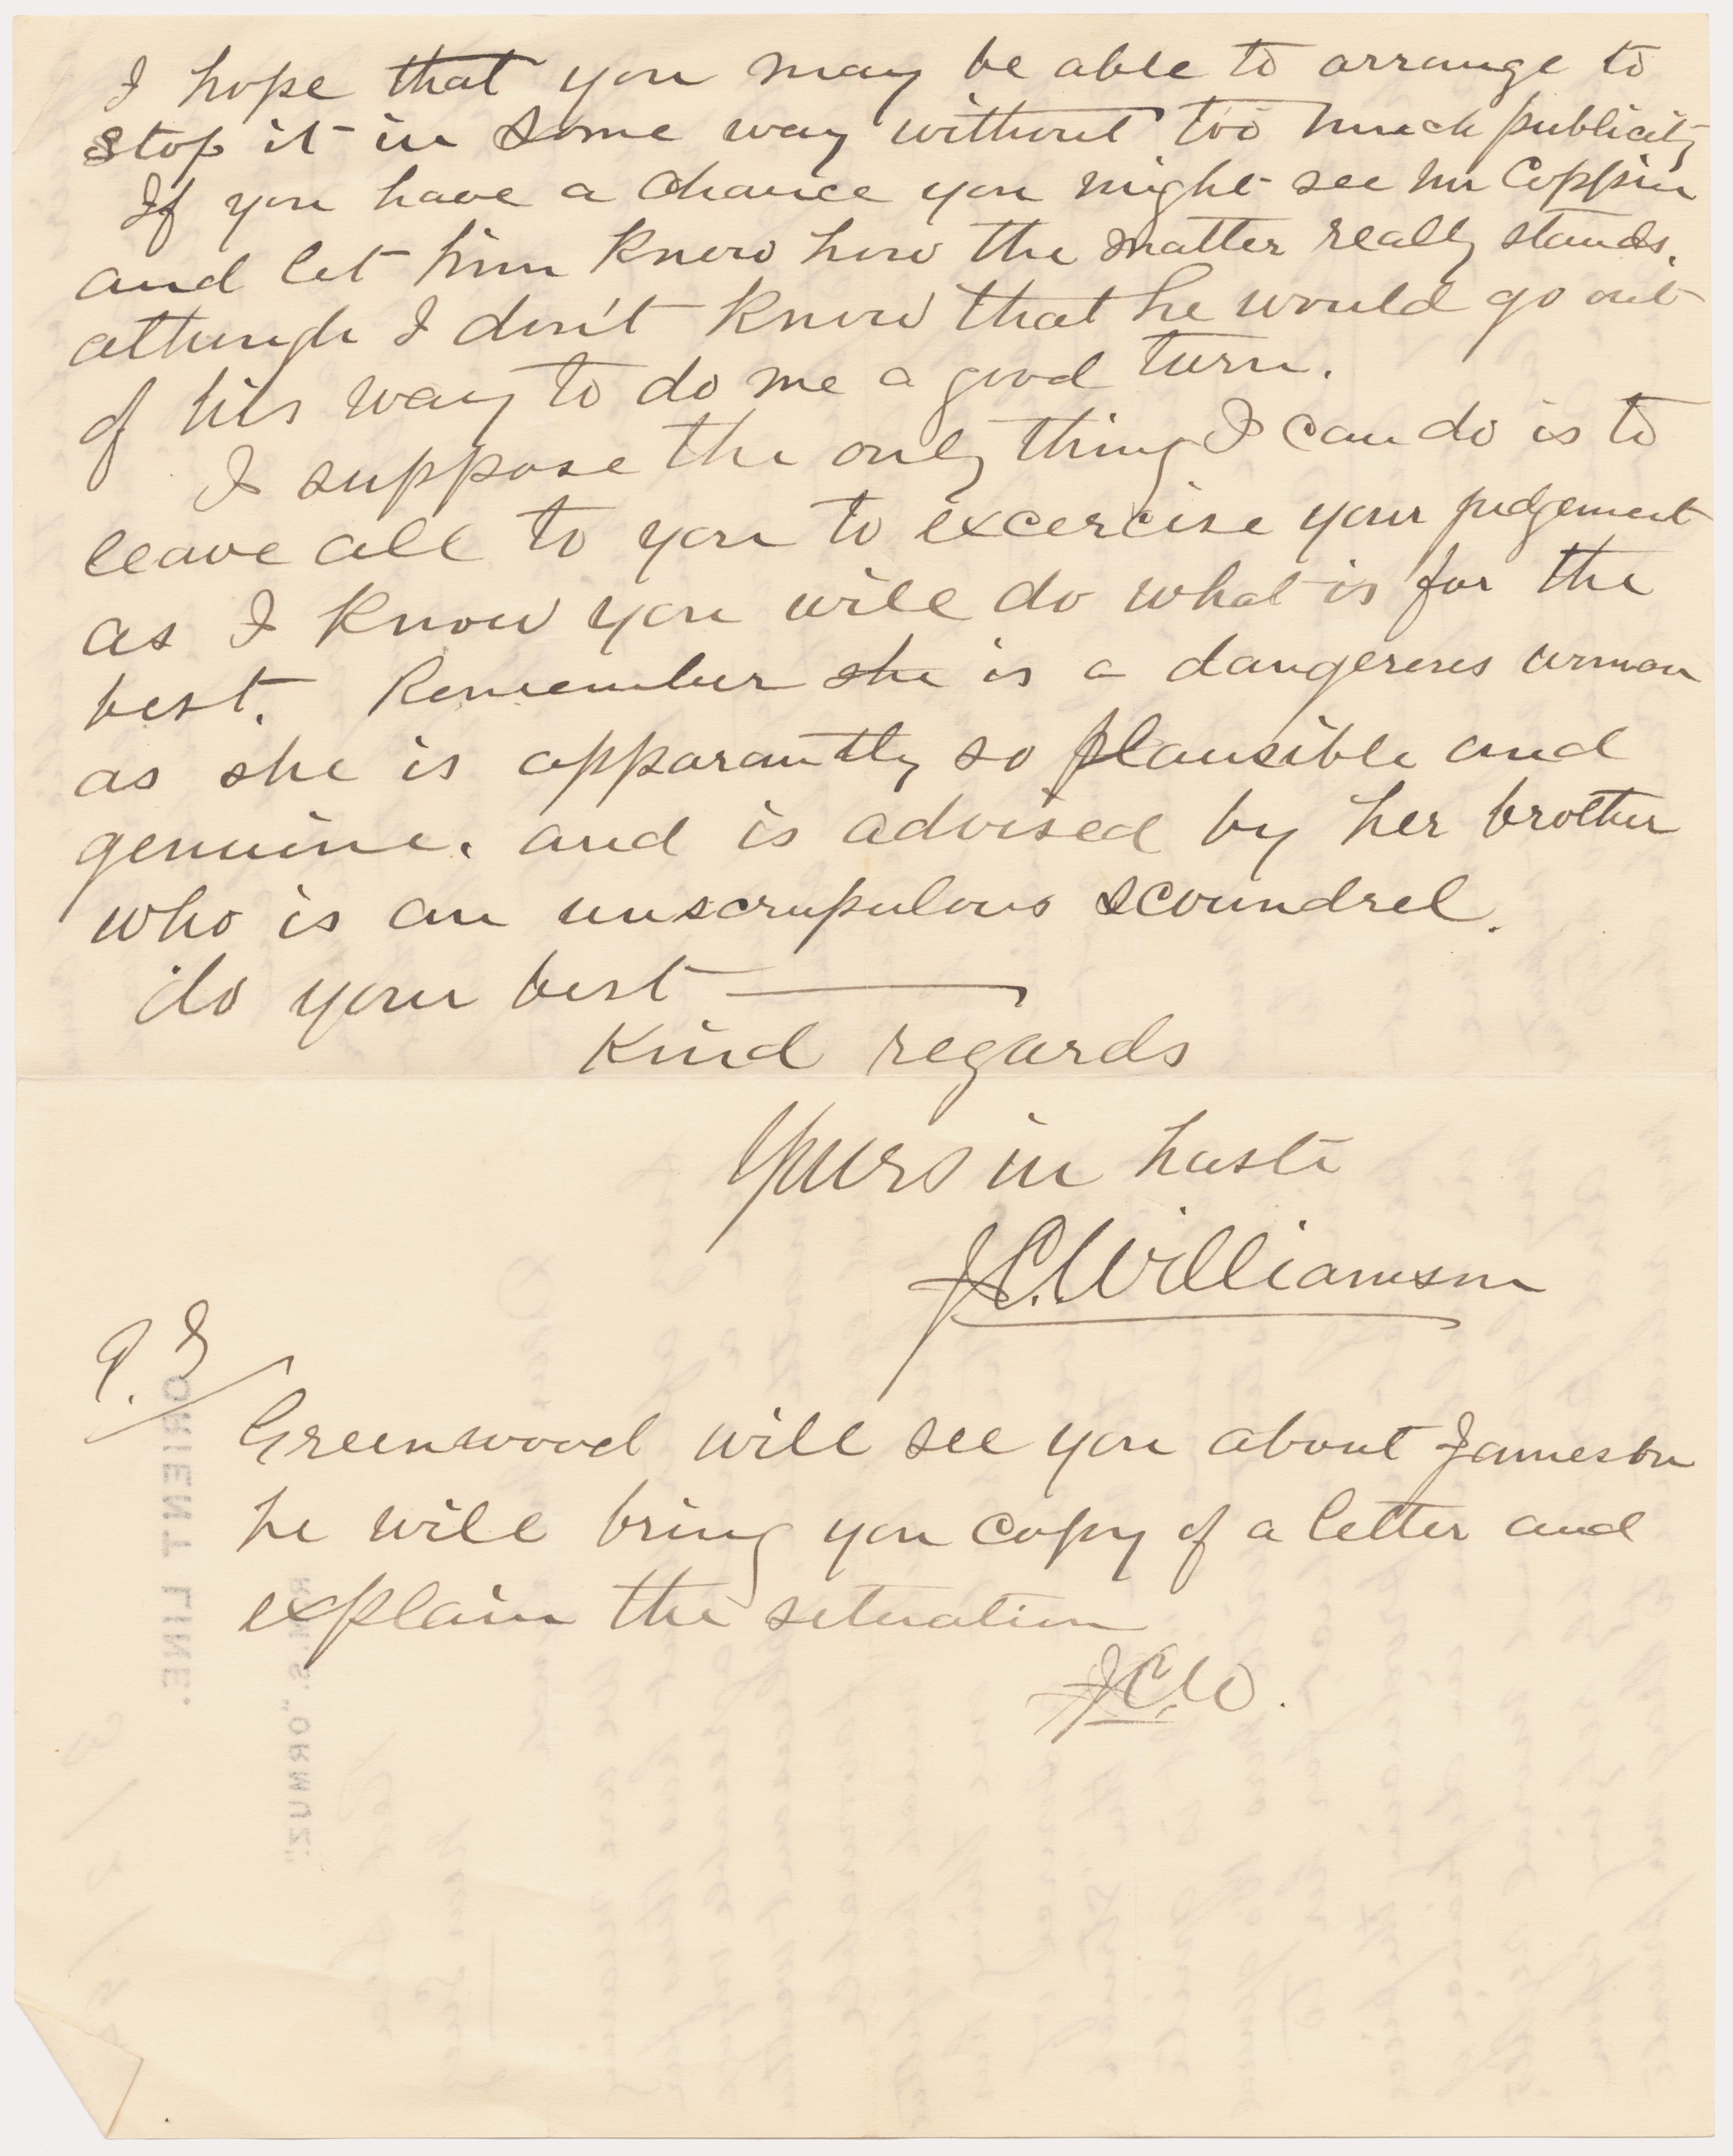 I hope that you may be able to arrange to
stop it in some way without too much publicity
If you have a chance you might see Mr Coppin
and let him know how the matter really stands.
although I don't know that he would go out
of his way to do me a good turn.
I suppose the only thing I can do is to
leave all to you to excercise your judgement
as I know you will do what is for the
best. Remember she is a dangerous woman
as she is apparantly so plausible and
genuine. and is advised by her brother
who is an unscrupulous scoundrel.
do your best —
Kind regards
Yours in haste
J.C. Williamson
P.S
Greenwood will see you about Jameson
he will bring you copy of a letter and
explain the situation
J.C.W.
ORIENT LINE.
R.M.S. "ORMUZ"